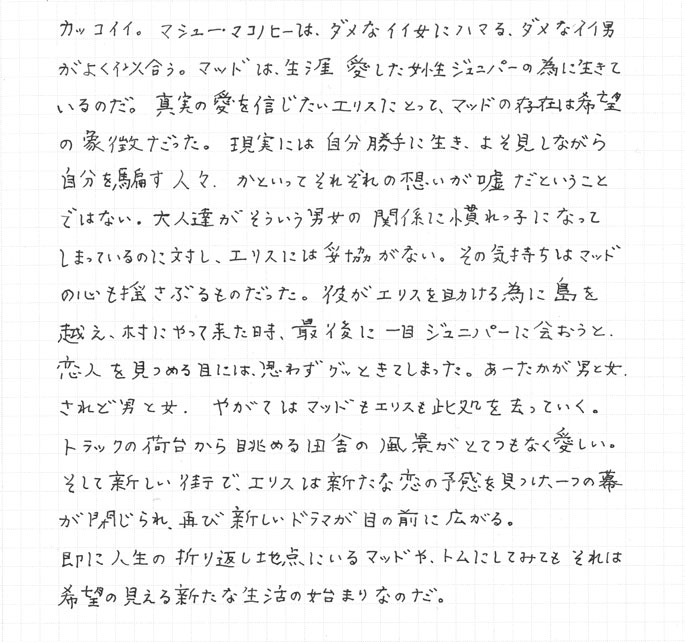 カッコイイ。マシュー・マコノヒーは、ダメなイイ女にハマる、ダメなイイ男
がよく似合う。マッドは、生涯愛した女性ジュニパーの為に生きて
いるのだ。真実の愛を信じたいエリスにとって、マッドの存在は希望
の象徴だった。現実には自分勝手に生き、よそ見しながら
自分を騙す人々．かといってそれぞれの想いが嘘だということ
ではない。大人達がそういう男女の関係に慣れっ子になって
しまっているのに対し、エリスには妥協がない。その気持ちはマッド
の心も揺さぶるものだった。彼がエリスを助ける為に島を
越え、村にやって来た時、最後に一目ジュニパーに会おうと、
恋人を見つめる目には、思わずグッときてしまった。あーたかが男と女．
されど男と女．やがてはマッドもエリスも此処を去っていく。
トラックの荷台から眺める田舎の風景がとてつもなく愛しい。
そして新しい街で、エリスは新たな恋の予感を見つけた、一つの幕
が閉じられ、再び新しいドラマが目の前に広がる。
即に人生の折り返し地点にいるマッドや、トムにしてみてもそれは
希望の見える新たな生活の始まりなのだ。